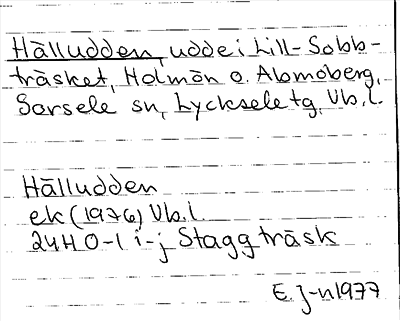 Hälludden, udde i Lill-Sobb-
träsket, Holmön o. Abmoberg,
Sorsele sn, Lycksele tg, Vb. l.
Hälludden
ek (1976) Vb. l
24H 0-1 i-j Staggträsk
E. J-n 1977